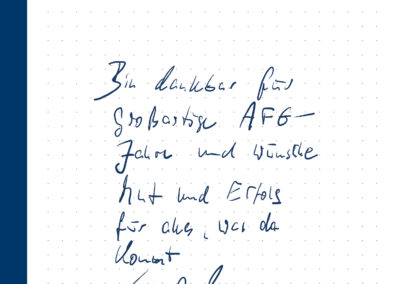 Bin dankbar für
großartige AFG-
Jahre und wünsche
Mut und Erfolg
für alles, was da
kommt